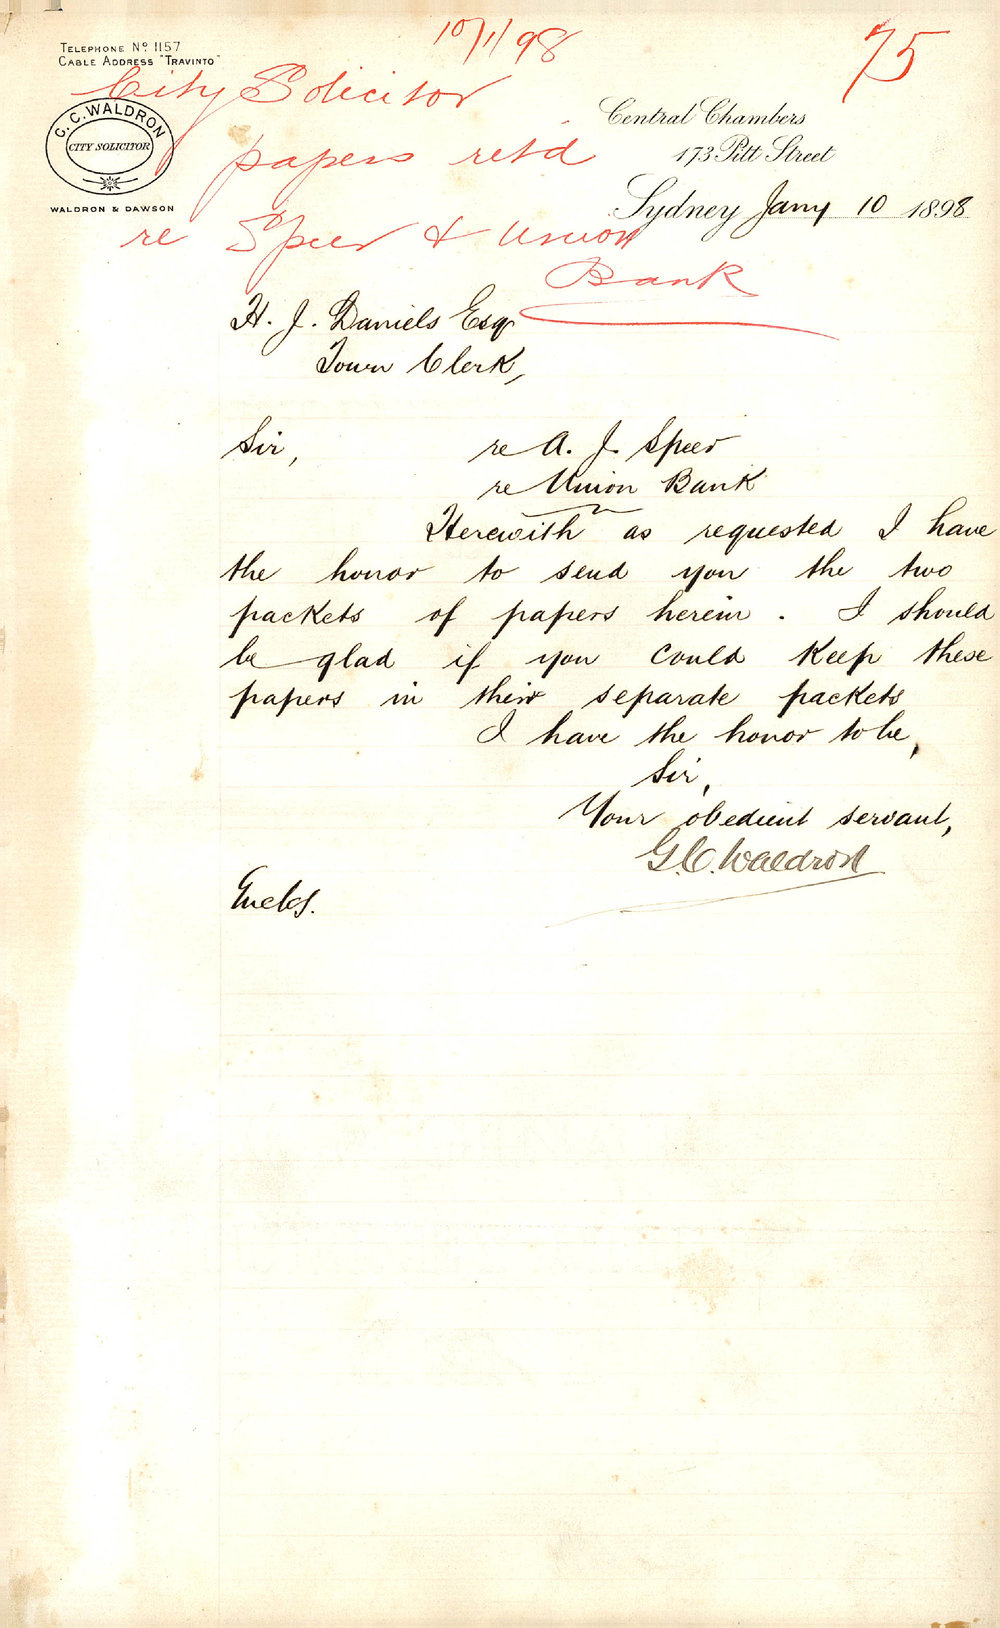 10/1/98
75
TELEPHONE Nº 1157
CABLE ADDRESS "TRAVINTO"
City Solicitor
papers retd
re Speer & Union
Bank
C. C. WALDRON
CITY SOLICITOR
WALDRON & DAWSON
Central Chambers
173 Pitt Street
Sydney Jany 10 1898
H. J. Daniels Esq
Town Clerk,
Sir,
re A. J. Speer
re Union Bank
Herewith as requested I have
the honor to send you the two
packets of papers herein. I should
be glad if you could keep these
papers in their separate packets
I have the honor to be,
Sir,
Your obedient servant,
G. C. Waldron
Encls.